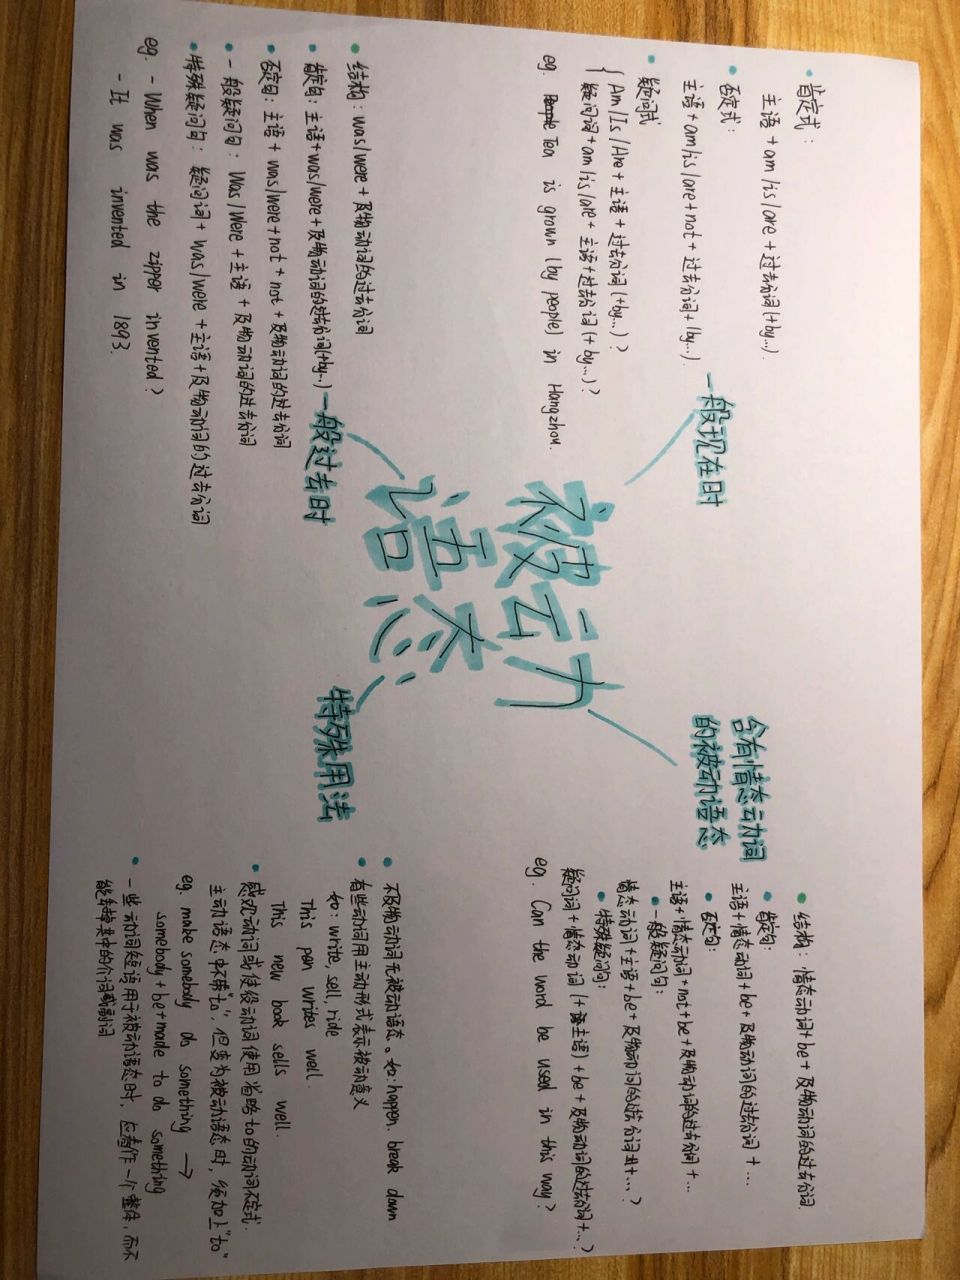 被动
语态
一般现在时
• 肯定式：
主语 + am/is/are + 过去分词(+by...).
• 否定式：
主语 + am/is/are + not + 过去分词 + (by...).
• 疑问式
{ Am/Is/Are + 主语 + 过去分词 (+by...) ?
疑问词 + am/is/are + 主语 + 过去分词 (+ by...) ?
eg. Tea is grown (by people) in Hangzhou.
含有情态动词
的被动语态
• 结构：情态动词 + be + 及物动词的过去分词.
• 肯定句：
主语 + 情态动词 + be + 及物动词的过去分词 + ...
• 否定句：
主语 + 情态动词 + not + be + 及物动词的过去分词 + ...
• 一般疑问句：
情态动词 + 主语 + be + 及物动词的过去分词 + ... ?
• 特殊疑问句：
疑问词 + 情态动词 (+ 主语) + be + 及物动词的过去分词 + ... ?
eg. Can the word be used in this way?
一般过去时
• 结构：was/were + 及物动词的过去分词
• 肯定句：主语 + was/were + 及物动词的过去分词(+by...)
• 否定句：主语 + was/were + not + not + 及物动词的过去分词
• 一般疑问句：Was/Were + 主语 + 及物动词的过去分词
• 特殊疑问句：疑问词 + was/were + 主语 + 及物动词的过去分词
eg. - When was the zipper invented?
- It was invented in 1893.
特殊用法
• 不及物动词无被动语态。如：happen, break down
• 有些动词用主动形式表示被动意义
如：write, sell, ride
This pen writes well.
This new book sells well.
• 感观动词或使役动词使用省略to的动词不定式.
主动语态中不带"to"，但变为被动语态时，须加上"to"
eg. make somebody do something →
somebody + be + made to do something
• 一些动词短语用于被动语态时，应看作一个整体，而不
能丢掉其中的介词或副词